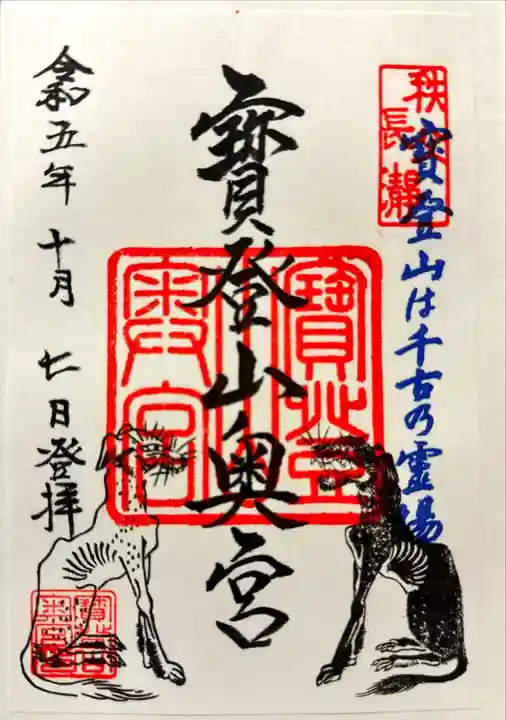 秩父
長瀞
寳登山は千古の霊場
寳登山奥宮
寳登山
奥宮
令和五年十月七日登拝